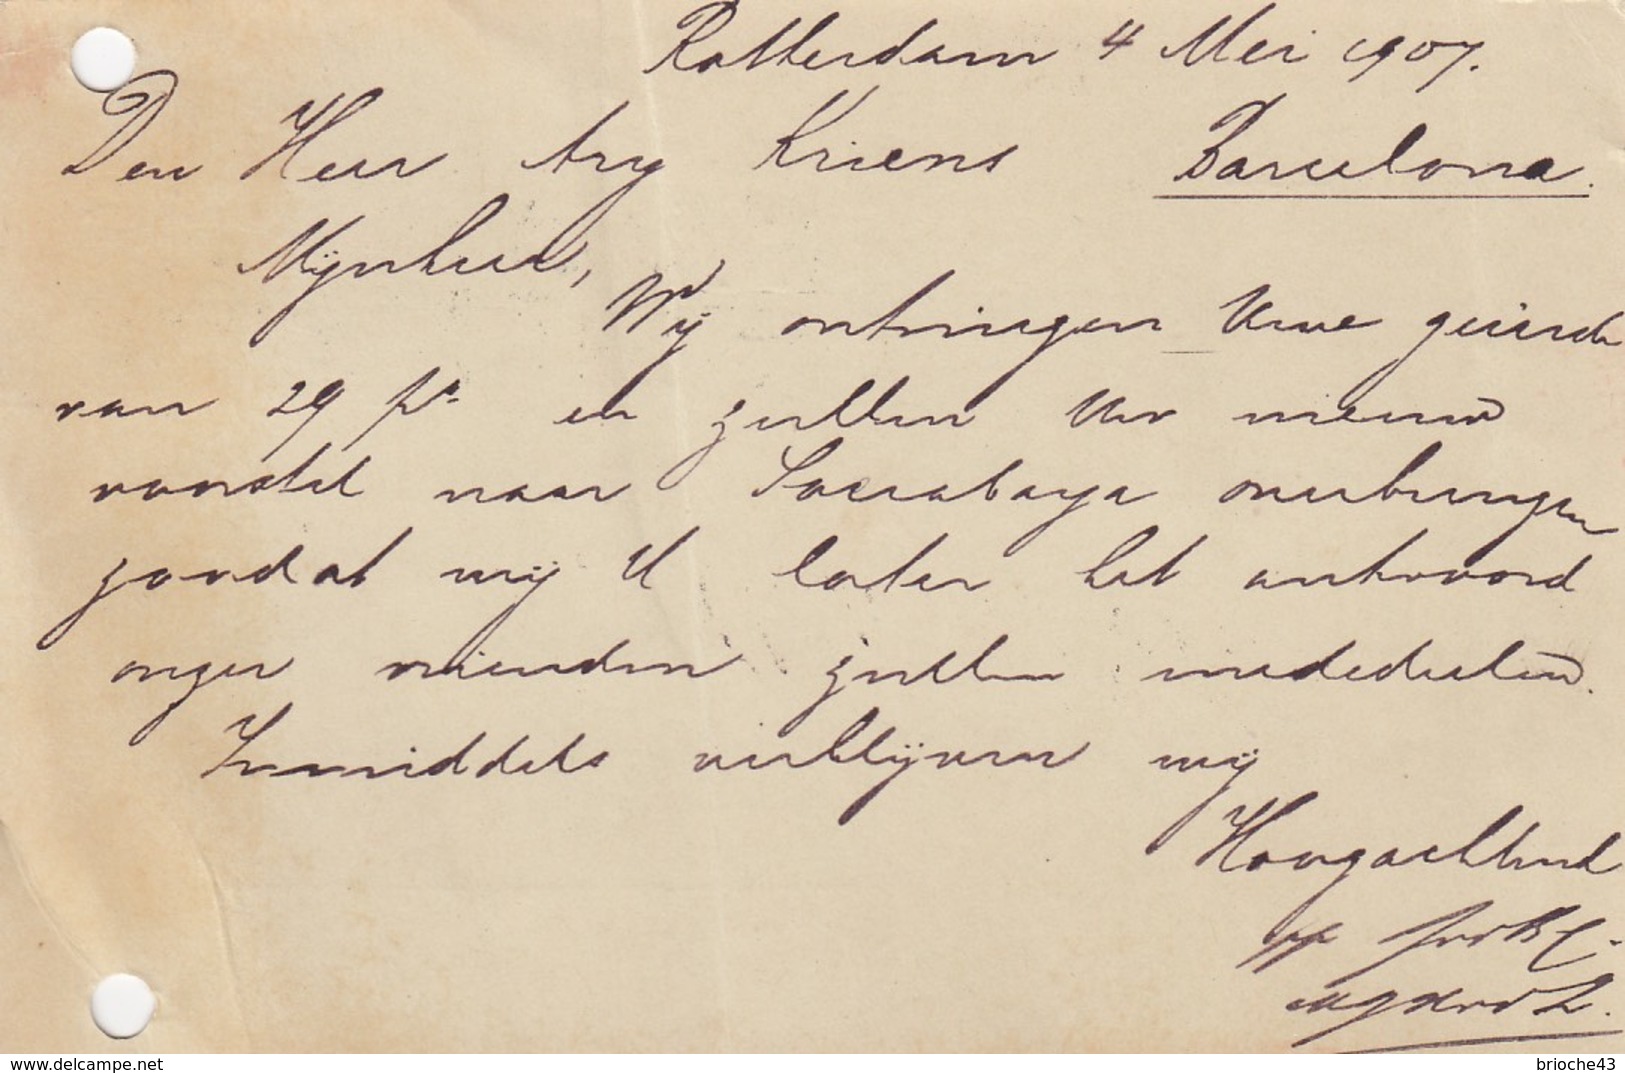 Rotterdam 4 Mei 1907.
Den Heer Ary Kriens Barcelona.
Mijnheer,
Wij ontvingen Uwe geëerde
van 29 pº en zullen Uw nieuw
voorstel naar Soerabaya overbrengen
zoodat wij U later het antwoord
onzer vrienden zullen mededeelen.
Inmiddels verblijven wij
Hoogachtend
pp
www.delcampe.net
brioche43